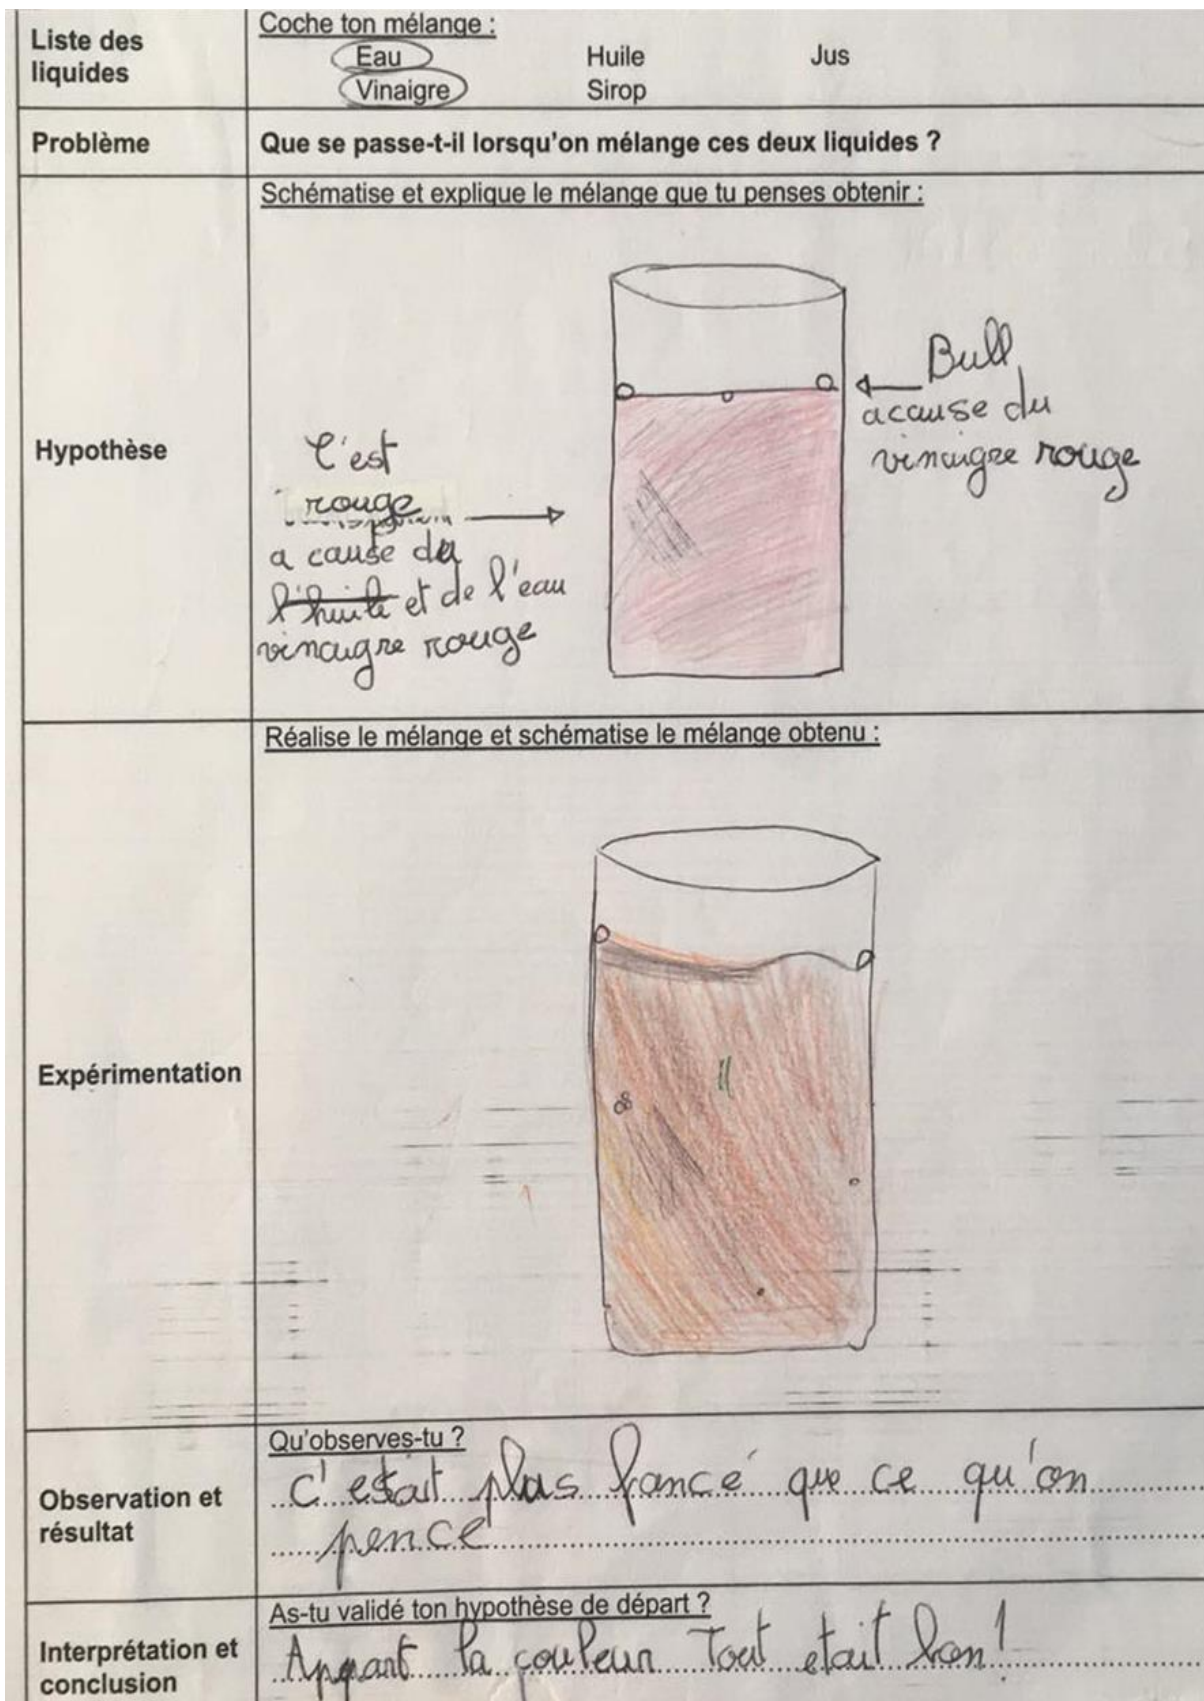 Liste des
liquides
Coche ton mélange :
Eau Huile Jus
Vinaigre Sirop
Problème
Que se passe-t-il lorsqu'on mélange ces deux liquides ?
Hypothèse
Schématise et explique le mélange que tu penses obtenir :
Bull
acause du
vinaigre rouge
C'est
rouge
a cause du
l'huile et de l'eau
vinaigre rouge
Expérimentation
Réalise le mélange et schématise le mélange obtenu :
Observation et
résultat
Qu'observes-tu ?
C'estait plus foncé que ce qu'on
pence
Interprétation et
conclusion
As-tu validé ton hypothèse de départ ?
Appart la couleur Tout etait bon!